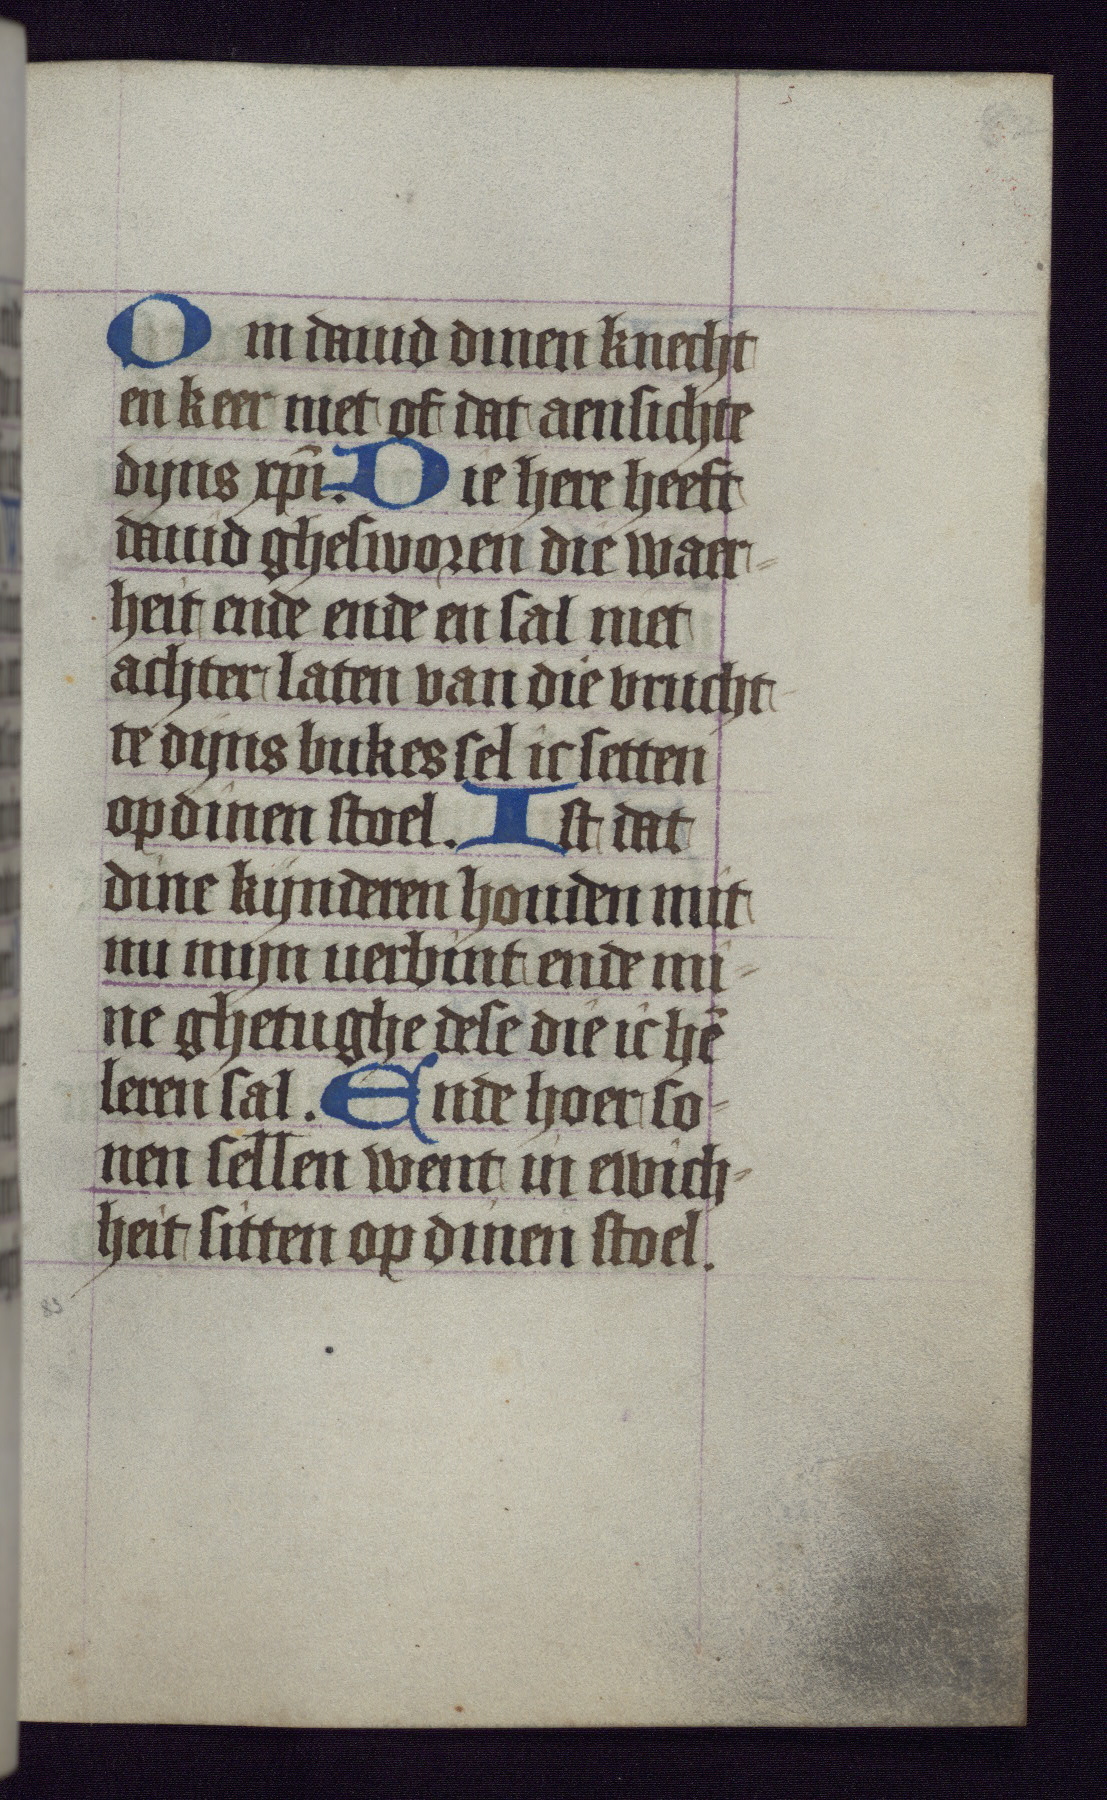 Om dauid dinen knecht
en keer niet of dat aensichte
dijns xp̄i. Die here heeft
dauid ghesworen die waer-
heit ende ende en sal niet
achter laten van die vrucht
te dijns bukes sel ic setten
op dinen stoel. Ist dat
dine kijnderen houden mit
mi mijn uerbint ende mi-
ne ghetughe dese die ic hē
leren sal. Ende hoer so-
nen sellen went in ewich-
heit sitten op dinen stoel.
83